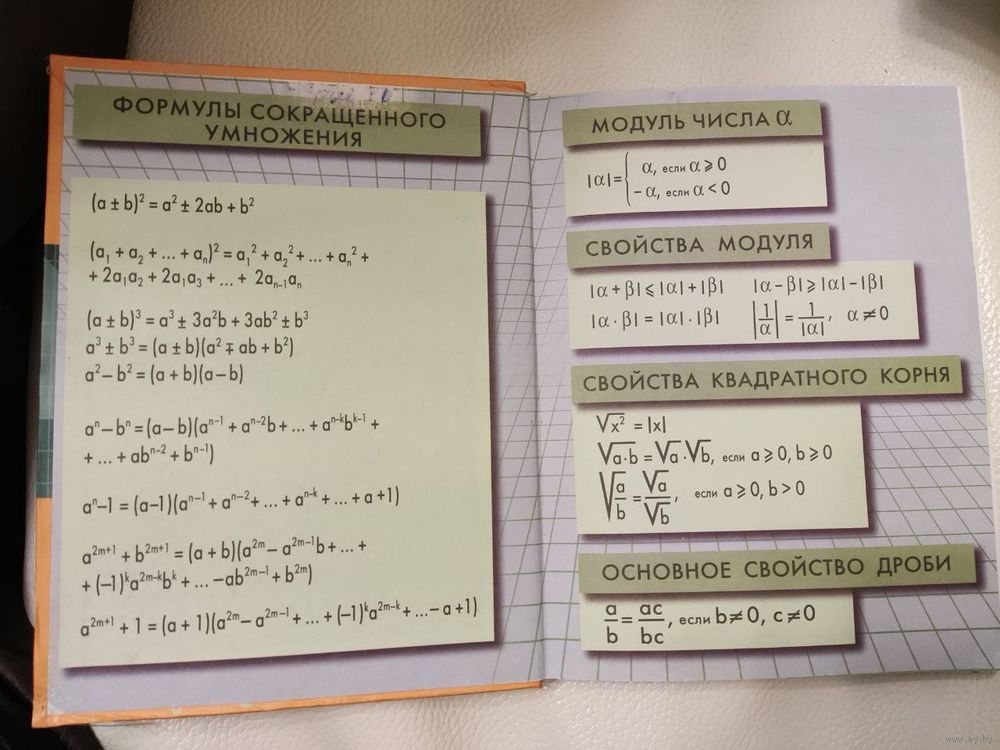 ФОРМУЛЫ СОКРАЩЕННОГО
УМНОЖЕНИЯ
(a ± b)² = a² ± 2ab + b²
(a₁ + a₂ + ... + aₙ)² = a₁² + a₂² + ... + aₙ² +
+ 2a₁a₂ + 2a₁a₃ + ... + 2aₙ₋₁aₙ
(a ± b)³ = a³ ± 3a²b + 3ab² ± b³
a³ ± b³ = (a ± b)(a² ∓ ab + b²)
a² – b² = (a + b)(a – b)
aⁿ – bⁿ = (a – b)(aⁿ⁻¹ + aⁿ⁻²b + ... + aⁿ⁻ᵏbᵏ⁻¹ +
+ ... + abⁿ⁻² + bⁿ⁻¹)
aⁿ – 1 = (a – 1)(aⁿ⁻¹ + aⁿ⁻² + ... + aⁿ⁻ᵏ + ... + a + 1)
a²ᵐ⁺¹ + b²ᵐ⁺¹ = (a + b)(a²ᵐ – a²ᵐ⁻¹b + ... +
+ (–1)ᵏa²ᵐ⁻ᵏbᵏ + ... – ab²ᵐ⁻¹ + b²ᵐ)
a²ᵐ⁺¹ + 1 = (a + 1)(a²ᵐ – a²ᵐ⁻¹ + ... + (–1)ᵏa²ᵐ⁻ᵏ + ... – a + 1)
МОДУЛЬ ЧИСЛА α
|α| = { α, если α ⩾ 0
– α, если α < 0
СВОЙСТВА МОДУЛЯ
|α + β| ⩽ |α| + |β| |α – β| ⩾ |α| – |β|
|α · β| = |α| · |β| |1/α| = 1/|α|, α ≠ 0
СВОЙСТВА КВАДРАТНОГО КОРНЯ
√x² = |x|
√a·b = √a · √b, если a ⩾ 0, b ⩾ 0
√a/b = √a/√b, если a ⩾ 0, b > 0
ОСНОВНОЕ СВОЙСТВО ДРОБИ
a/b = ac/bc, если b ≠ 0, c ≠ 0
www.ay.by